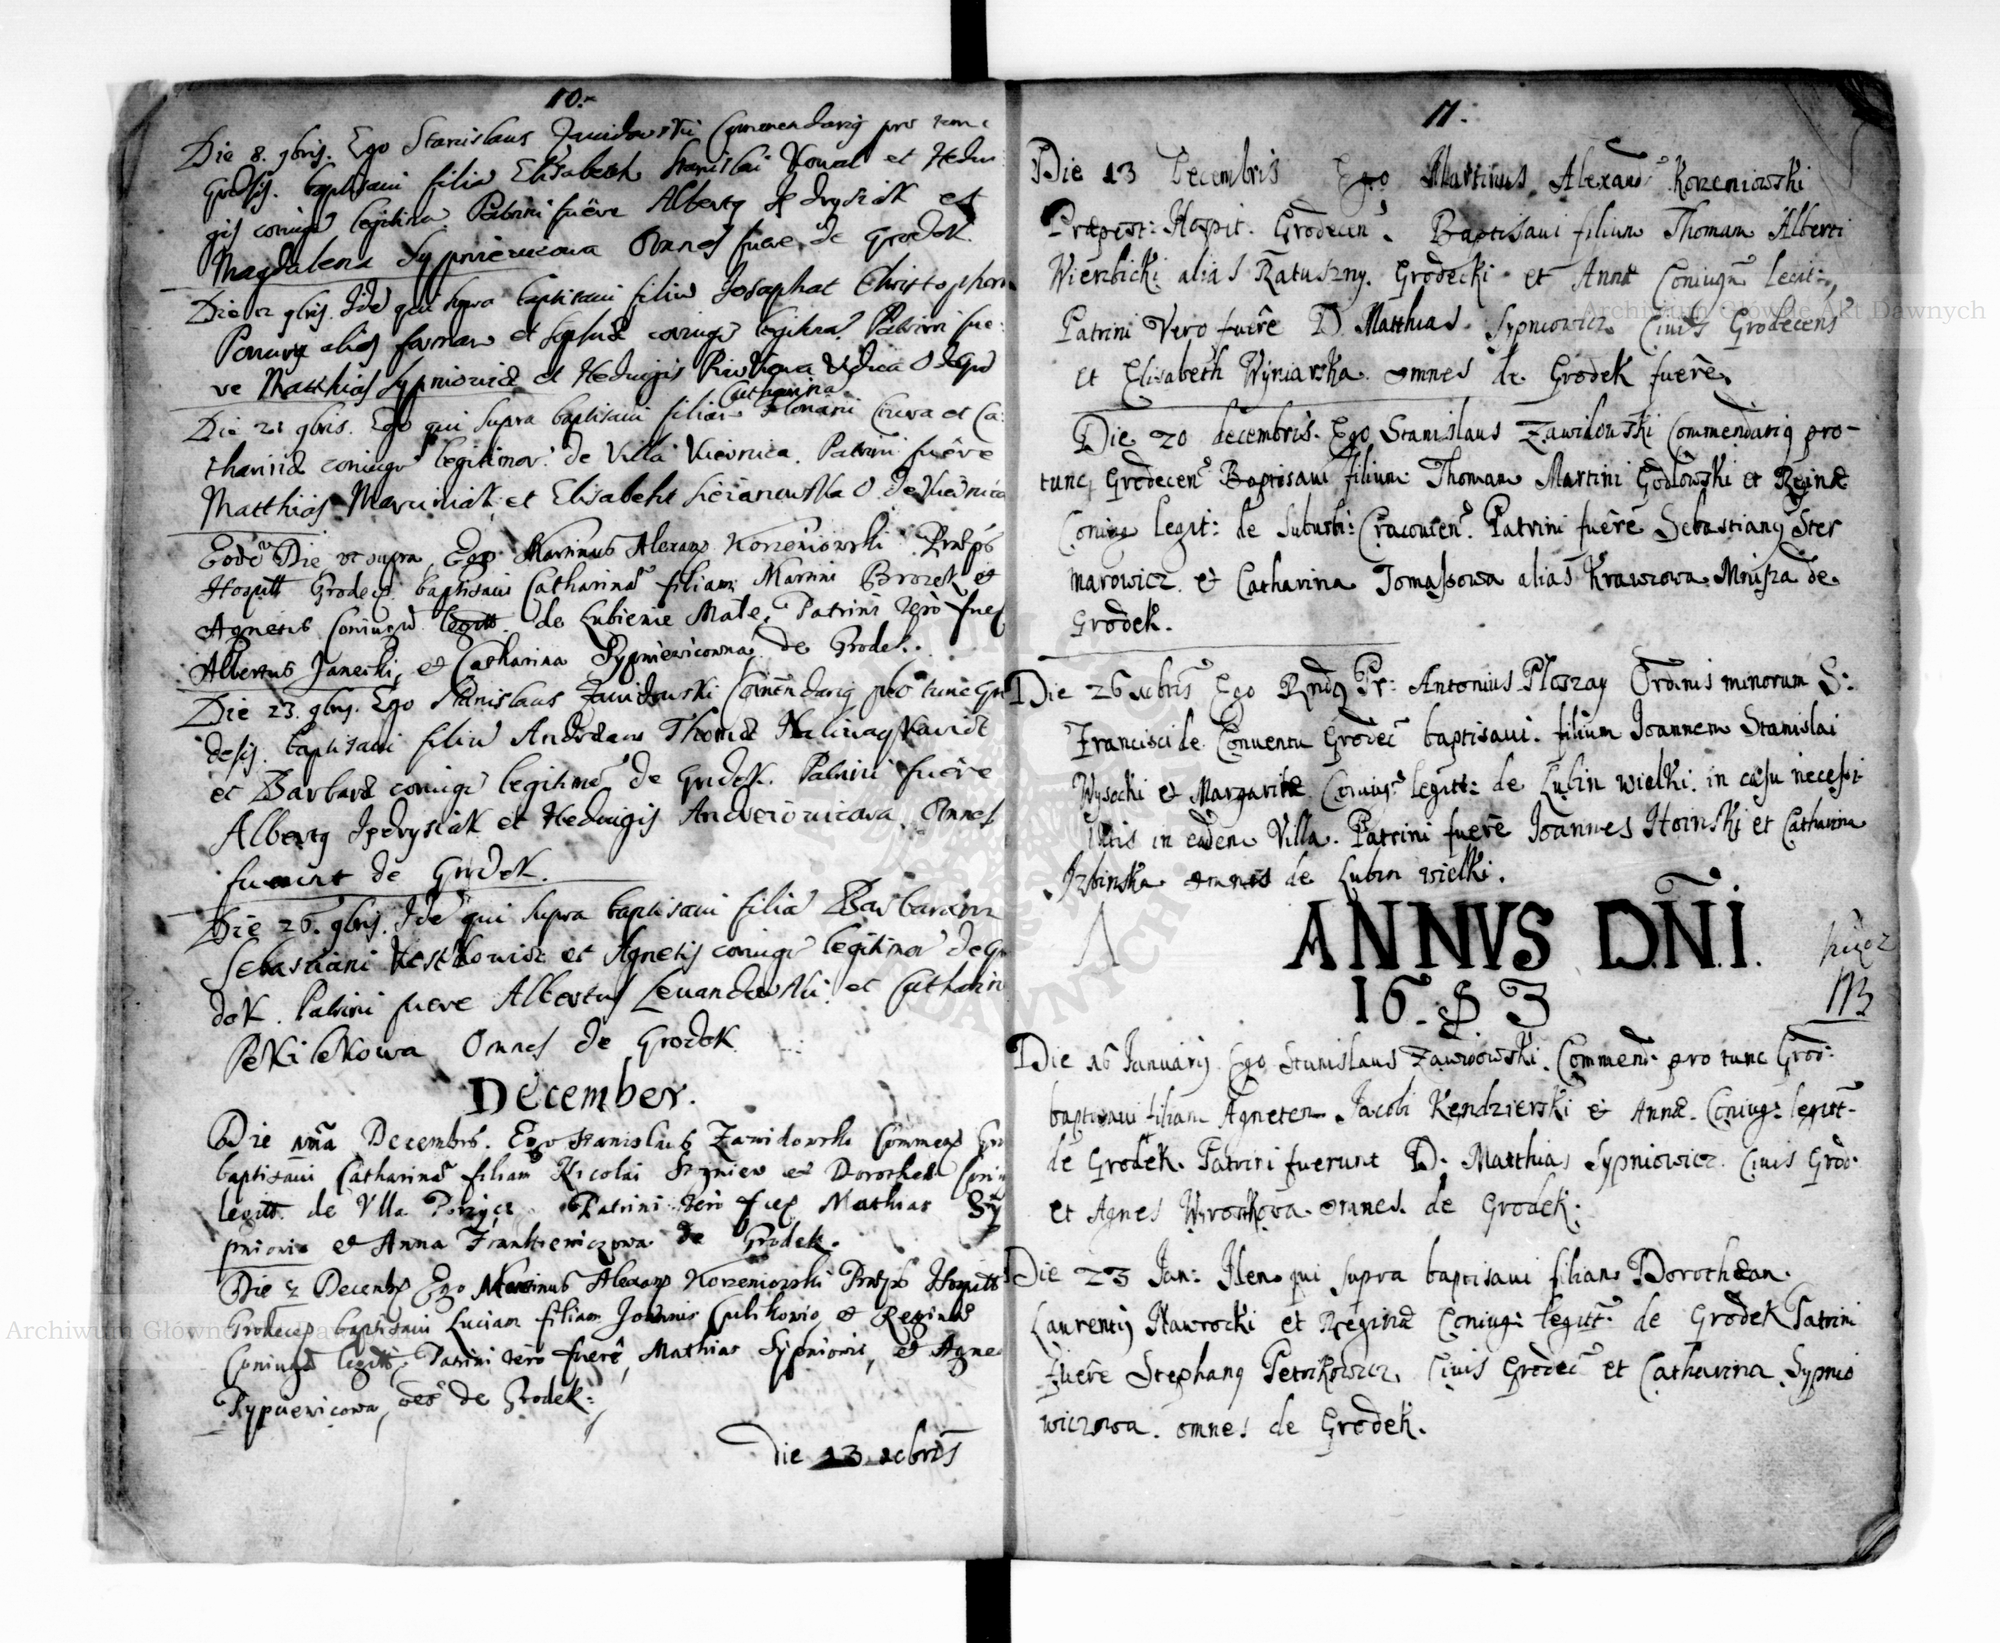 10.
Die 8. 9bris. Ego Stanislaus Zawidowski Commendariq pro tunc
Grodesis. baptisaui filia Elisabeth Stanislai Kowal et Hedui
gis coniugu legitima Patrini fuere Albertq Jedrysiak et
Magdalena Sypniewicowa Omnes fuere de Grodek.
Die 12 9bris. Ide qui supra baptisaui filiu Josaphat Christophori
alias furman et Sophiæ coniugu legitima. Patrini fue:
ve Matthias Sypniowicz et Heduigis
Catharina
Die 21 9bris. Ego qui supra baptisaui filiam Floriani et Ca:
tharinæ coniugu legitimor. de Villa Kiernica. Patrini fuêre
Matthias Marciniak et Elisabeht O de Kiernica
Eode Die, ut supra, Ego Martinus Alexanr Korzeniowski Præps
Hospitt Grodecs baptisaui Catharina filiam Martini Brozek et
Agnetis Coniugu legitt de Lubienie Małe, Patrini verò fues
Albertus Janecki, et Catharina Rypniewicowna de Grodek.
Die 23. 9bris. Ego Stanislaus Zawidowski Comendariq pro tunc Gro
desis. baptisaui filiu Andream Thomæ
et Barbaræ coniugu legitimo de Grodek. Patrini fuêre
Albertq Jedrysiak et Heduigis Andreiowicowa Omnes
fuerunt de Grodek.
Die 26. 9bris. Ide qui supra baptisaui filia Barbaram
Sebastiani et Agnetis coniugu legitimor de Gro
dek. Patrini fuere Albertus Lewandowski et Catharin
Pekilekowa Omnes de Grodek
December.
Die Decembris. Ego Stanislaus Zawidowski Commens Gro
baptisaui Catharina filiam Nicolai Szyniew et Dorotheæ Coniu
legitt de Vlla Patrini verò fues Mathias Sy
pniowic et Anna Frankiewiczowa de Grodek.
Die 2 Decembs Ego Martinus Alexans Korzeniowski Præps Hospitt
Grodecens baptisaui Luciam filiam Joannis Culikowic et Reginæ
Coniugu legitt. Patrini verò fuerê, Mathias Sypniowic, et Agnes
Rypniewicowa, oes de Grodek.
Die 13 xcbris
11.
Die 13 Decembris Ego Martinus Alexanr Korzeniowski
Præpost: Hospit: Grodecen. Baptisaui filium Thomam Alberti
Wierzbicki alias Ratuszny. Grodecki et Annæ Coniugu legit:
Patrini Vero fuêre D. Matthias. Sypniowicz Ciuis Grodecens
et Elisabeth Wyniarska. omnes de Grodek fuerê.
Die 20 decembris. Ego Stanislaus Zawidowski Commendariq pro-
tunc, Grodecen Baptisaui filium Thomam Martini Godlowski et Reginæ
Coniug legit: de Suburbi: Cracouien. Patrini fuêre Sebastianq Ster
marowicz. et Catharina Tomaszowa alias Krawcowa Mnisza de
Grodek.
Die 26 xcbris Ego Rndq Pr: Antonius Płoszay Ordinis minorum S:
Francisci de Conuentu Grodec baptisaui. filium Joannem Stanislai
Wysocki et Margaritæ Coniug legitt: de Lubin wielki. in casu necessi
tatis in eadem Villa. Patrini fuerê Joannes Hoinski et Catharina
Izbinska omnes de Lubin wielki.
ANNVS D.N.I.
1683
Die 16 Januarij Ego Stanislaus Zawidowski. Commend: pro tunc Grod:
baptisaui filiam Agneten Jacobi Kendzierski et Annæ. Coniug: legitt-
de Grodek. Patrini fuerunt D. Matthias Sypniowicz. Ciuis Grod:
et Agnes Wronkowa. omnes. de Grodek.
Die 23 Jan: Idem qui supra baptisaui filiam Dorothean.
Laurentij Nawrocki et Reginæ Coniug: legitt: de Grodek Patrini
fuêre Stephanq Petrikowicz. Ciuis Grodec et Catharina Sypnio
wiczowa. omnes de Grodek.
Archiwum Główne Akt Dawnych